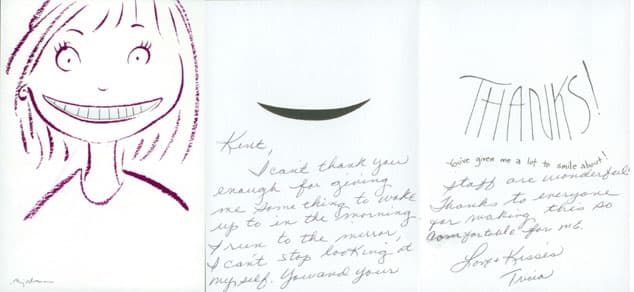 Kent,
I can't thank you
enough for giving
me something to wake
up to in the morning.
I run to the mirror,
I can't stop looking at
myself. You and your
THANKS!
You've given me a lot to smile about!
staff are wonderful!
Thanks to everyone
for making this so
comfortable for me.
Love & Kisses
Tricia